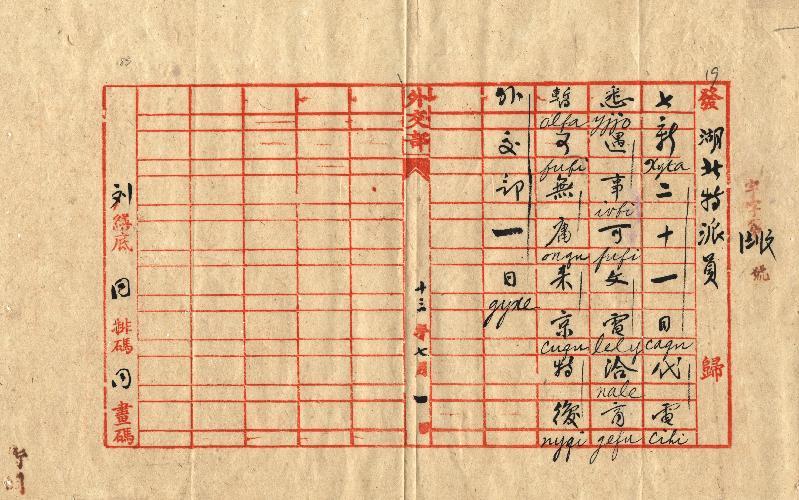 19
字字第 號
發 湖北特派員 歸
二十一日代電
xyta cagu cihi
悉遇事可文電洽商
yjjo ivbi fufi lely nale gefu
暫可無庸來京特復
olfa fufi ongu cugu nyqi
外交部一日
gyxe
外交部
十三年七月一日
刘 繕底 同 排碼 同 畫碼